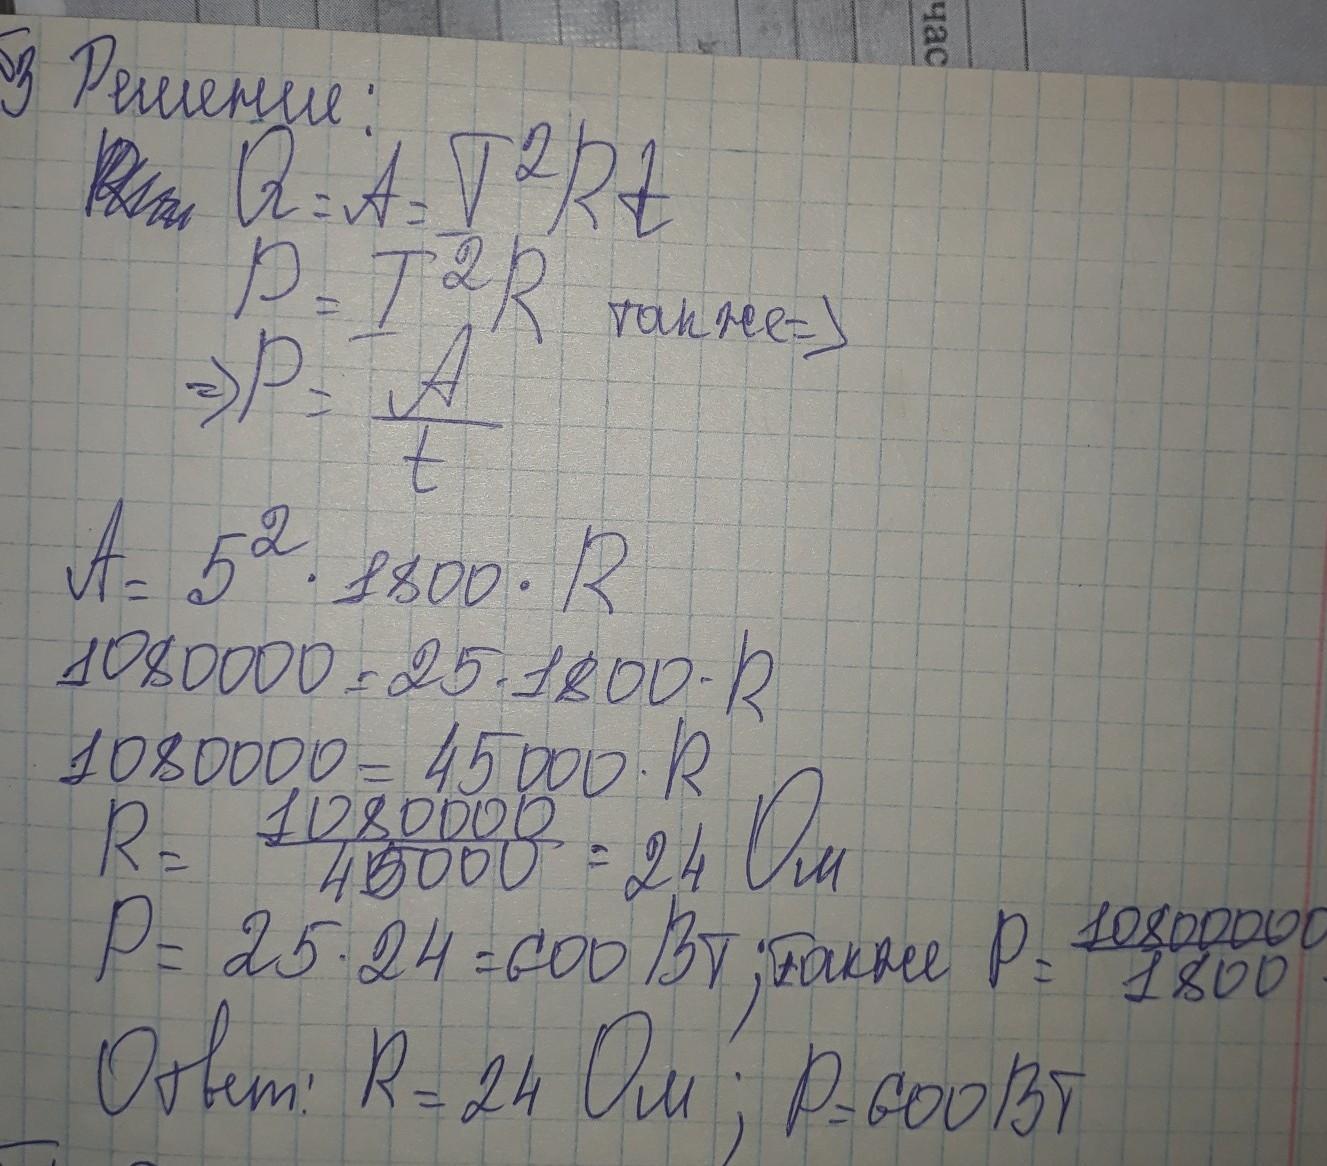 час
Решение:
Q = A = I²Rt
P = I²R также =>
=> P = A/t
A = 5² · 1800 · R
1080000 = 25 · 1800 · R
1080000 = 45000 · R
R = 1080000/45000 = 24 Ом
P = 25 · 24 = 600 Вт; также P = 10800000/1800
Ответ: R = 24 Ом; P = 600 Вт